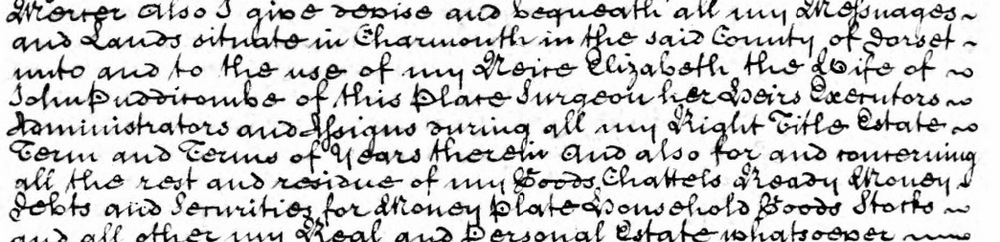 Mercer Also I give devise and bequeath all my Messuages
and Lands situate in Charmouth in the said County of Dorset
unto and to the use of my Neice Elizabeth the Wife of
John Puddicombe of this Place Surgeon her Heirs Executors
Administrators and Assigns during all my Right Title Estate
Term and Terms of Years therein And also for and concerning
all the rest and residue of my Goods Chattels Ready Money
Debts and Securities for Money Plate Household Goods Stocks
and all other my Real and Personal Estate whatsoever